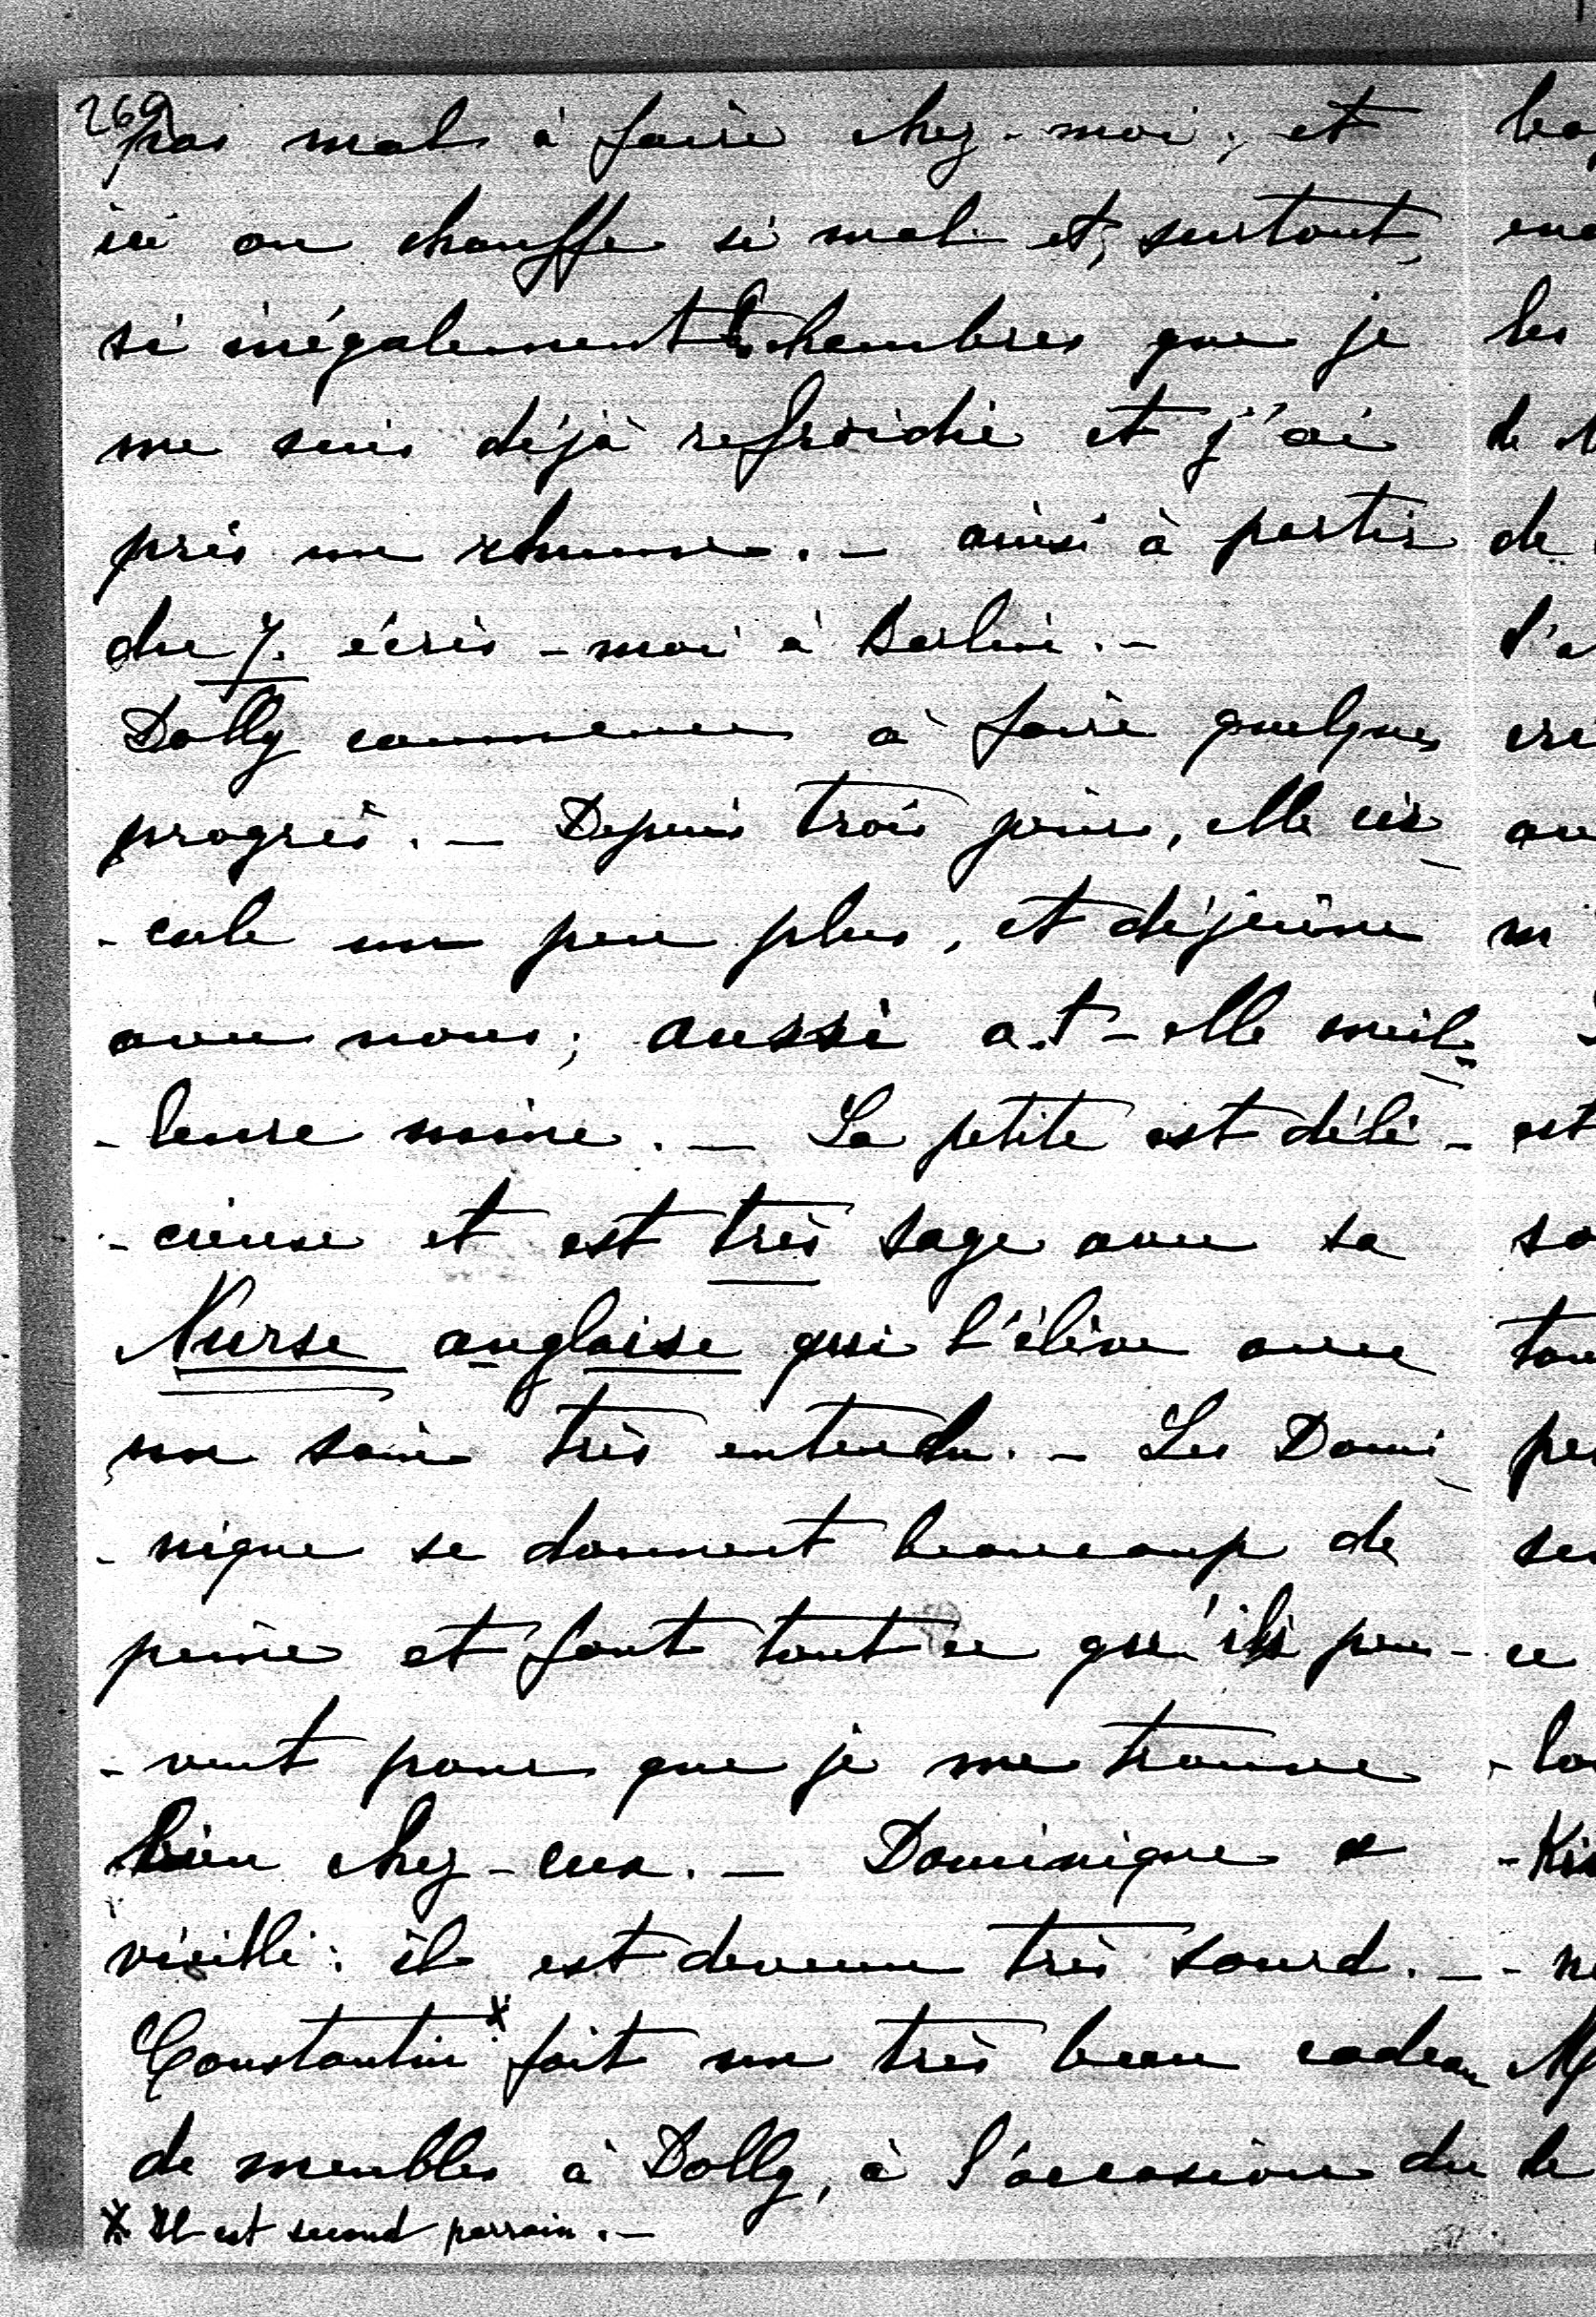 269
pas mal à faire chez-moi; et
ici on chauffe si mal et, surtout,
si inégalement les chambres que je
me suis déjà refroidie et j'ai
pris un rhume. — ainsi à partir
du 7. écris-moi à Berlin. —
Dolly commence à faire quelques
progrès. — Depuis trois jours, elle cir-
-cule un peu plus, et déjeûne
avec nous; aussi a-t-elle meil-
-leure mine. — La petite est déli-
-cieuse et est très sage avec sa
Nurse anglaise qui l'élève avec
un soin très entendu. — Les Domi-
-nique se donnent beaucoup de
peine et font tout ce qu'ils peu-
-vent pour que je me trouve
bien chez-eux. — Dominique a
vieilli: il est devenu très sourd. —
Constantin x fait un très beau cadeau
de meubles à Dolly, à l'occasion du
x Il est second parrain. —